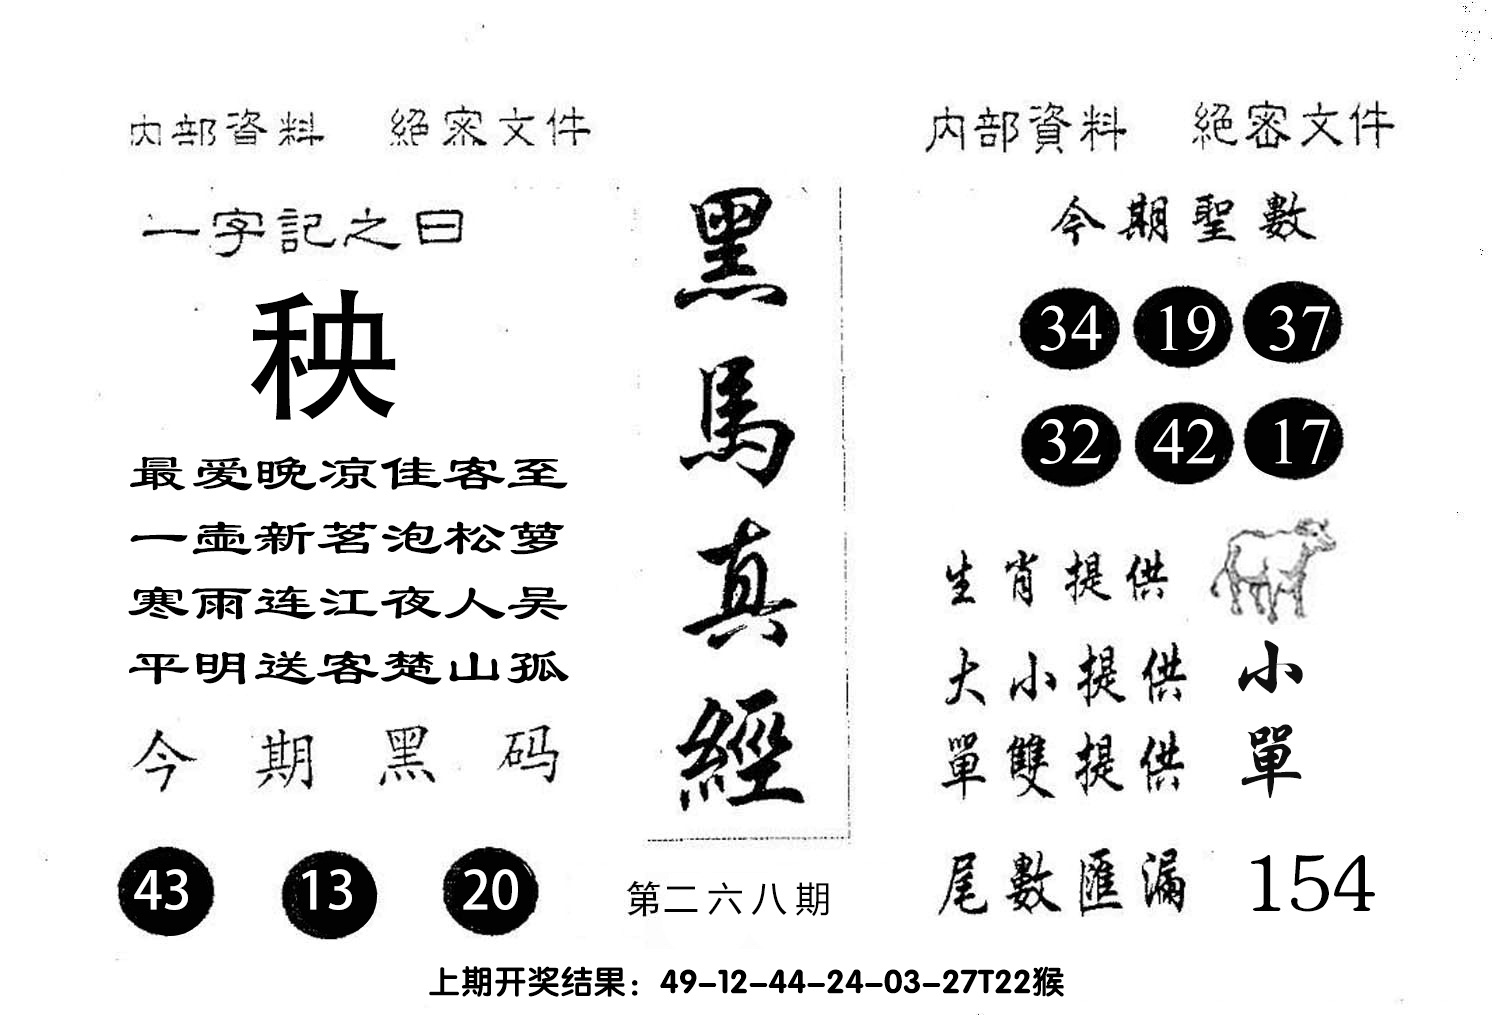 内部資料 絕密文件
一字記之曰
秧
最爱晚凉佳客至
一壶新茗泡松萝
寒雨连江夜人吴
平明送客楚山孤
今期黑码
43 13 20
黑馬真經
第二六八期
内部資料 絕密文件
今期聖數
34 19 37
32 42 17
生肖提供
大小提供 小
單雙提供 單
尾數匯漏 154
上期开奖结果：49-12-44-24-03-27T22猴